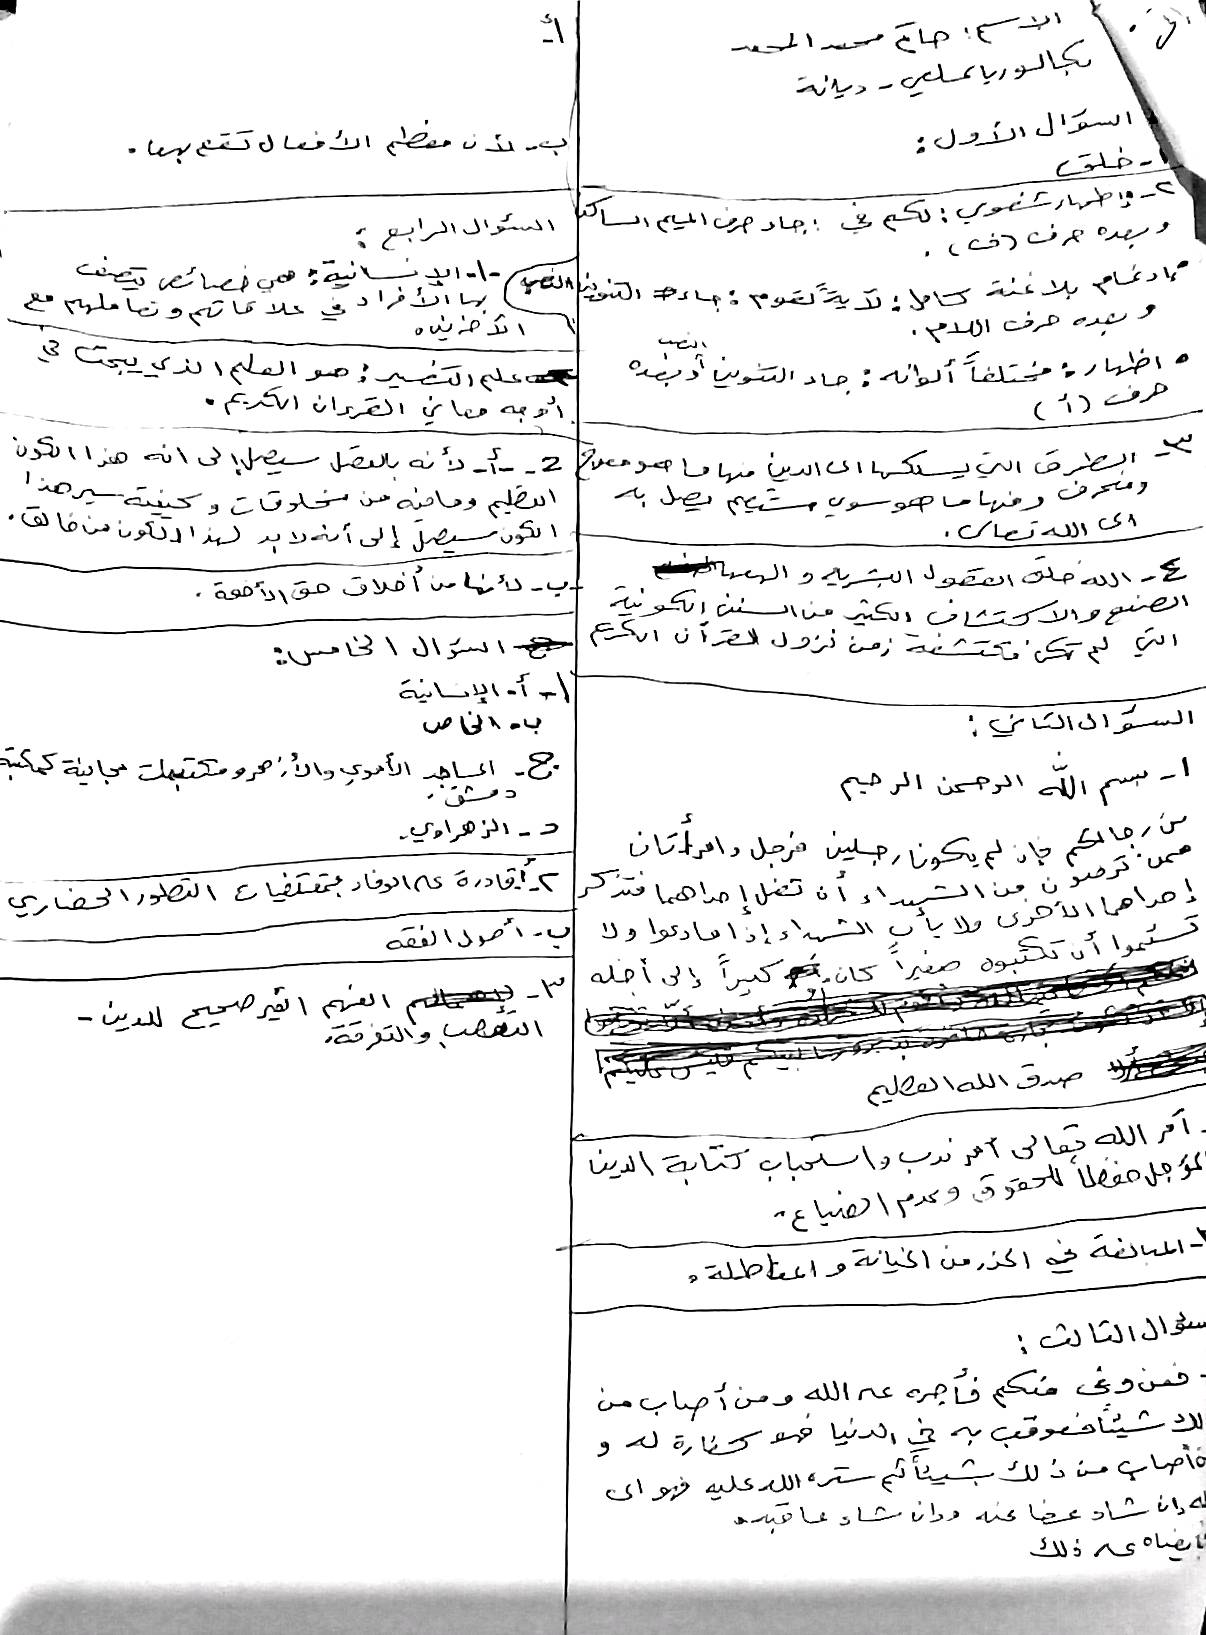 الاسم: حاتم محمد المحمد
بكالوريا علمي - ديانة
السؤال الأول:
١- خلق
٢- إظهار شفوي: لكم في: جاء حرف الميم الساكنة
وبعده حرف (ف).
إدغام بلا غنة كامل: لآيةً لقوم: جاء التنوين النصب
وبعده حرف اللام.
اظهار: مختلفاً ألوانه: جاء التنوين النصب وبعده
حرف (أ)
٣- الطرق التي يسلكها الى الدين منها ما هو معوج
ومنحرف ومنها ما هو سوي مستقيم يصل به
الى الله تعالى.
٤- الله خلق العقول البشرية والهمها
الصنع والاكتشاف الكثير من السنن الكونية
التي لم تكن مكتشفة زمن نزول القرآن الكريم
السؤال الثاني:
١- بسم الله الرحمن الرحيم
من رجالكم فإن لم يكونا رجلين فرجل وامرأتان
ممن ترضون من الشهداء أن تضل إحداهما فتذكر
إحداهما الأخرى ولا يأب الشهداء إذا ما دعوا ولا
تسئموا أن تكتبوه صغيراً كان أو كبيراً إلى أجله
صدق الله العظيم
أمر الله تعالى أمر ندب واستحباب كتابة الدين
المؤجل حفظاً للحقوق وعدم الضياع.
المبالغة في الحذر من الخيانة والمماطلة.
سؤال الثالث:
فمن وفى منكم فأجره على الله ومن أصاب من
ذلك شيئاً فعوقب به في الدنيا فهو كفارة له و
أصاب من ذلك بشيئاً ثم ستره الله عليه فهو الى
إن شاء عفا عنه وإن شاء عاقبه.
بايعناه على ذلك
أ-
ب- لأن معظم الأفعال تقع بهما.
السؤال الرابع:
١- الإنسانية: هي خصائص يتصف
بها الأفراد في علاقاتهم وتعاملهم مع
الآخرين.
علم التفسير: هو العلم الذي يبحث في
أوجه معاني القرءان الكريم.
2- أ- لأنه بالعقل سيصل إلى انه هذا الكون
العظيم وما فيه من مخلوقات وكيفية سير هذا
الكون سيصل إلى أنه لا بد لهذا الكون من خالق.
ب- لأنها من أخلاق حق الأخوة.
السؤال الخامس:
١- أ. الإنسانية
ب. الخاص
ج- المساجد الأموي والأزهر ومكتبات مجانية كمكتبة
دمشق.
د- الزهراوي.
٢- أ. قادرة على الوفاء بمقتضيات التطور الحضاري
ب- أصول الفقه
٣- الفهم الغير صحيح للدين -
التعصب والتفرقة.